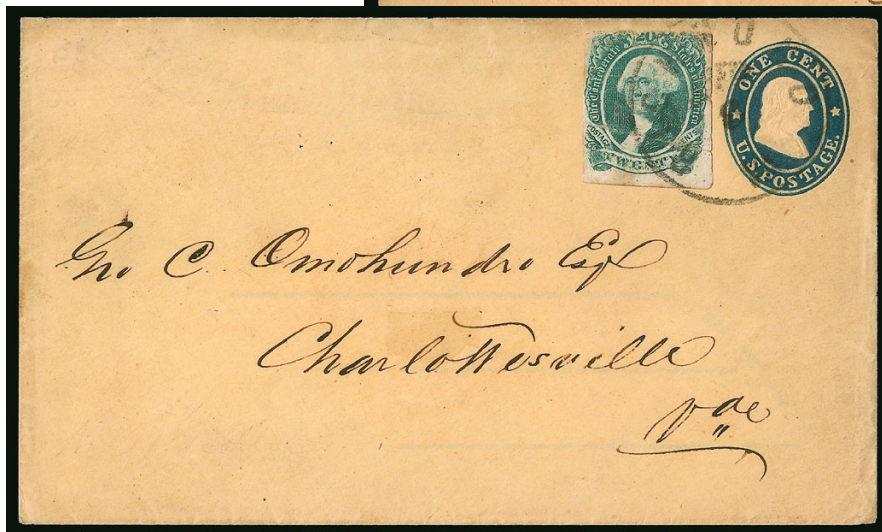 20
The Confederate States of America
POSTAGE
CENTS
TWENTY
ONE CENT
U.S. POSTAGE.
Jno C. Omohundro Esq
Charlottesville
Vae